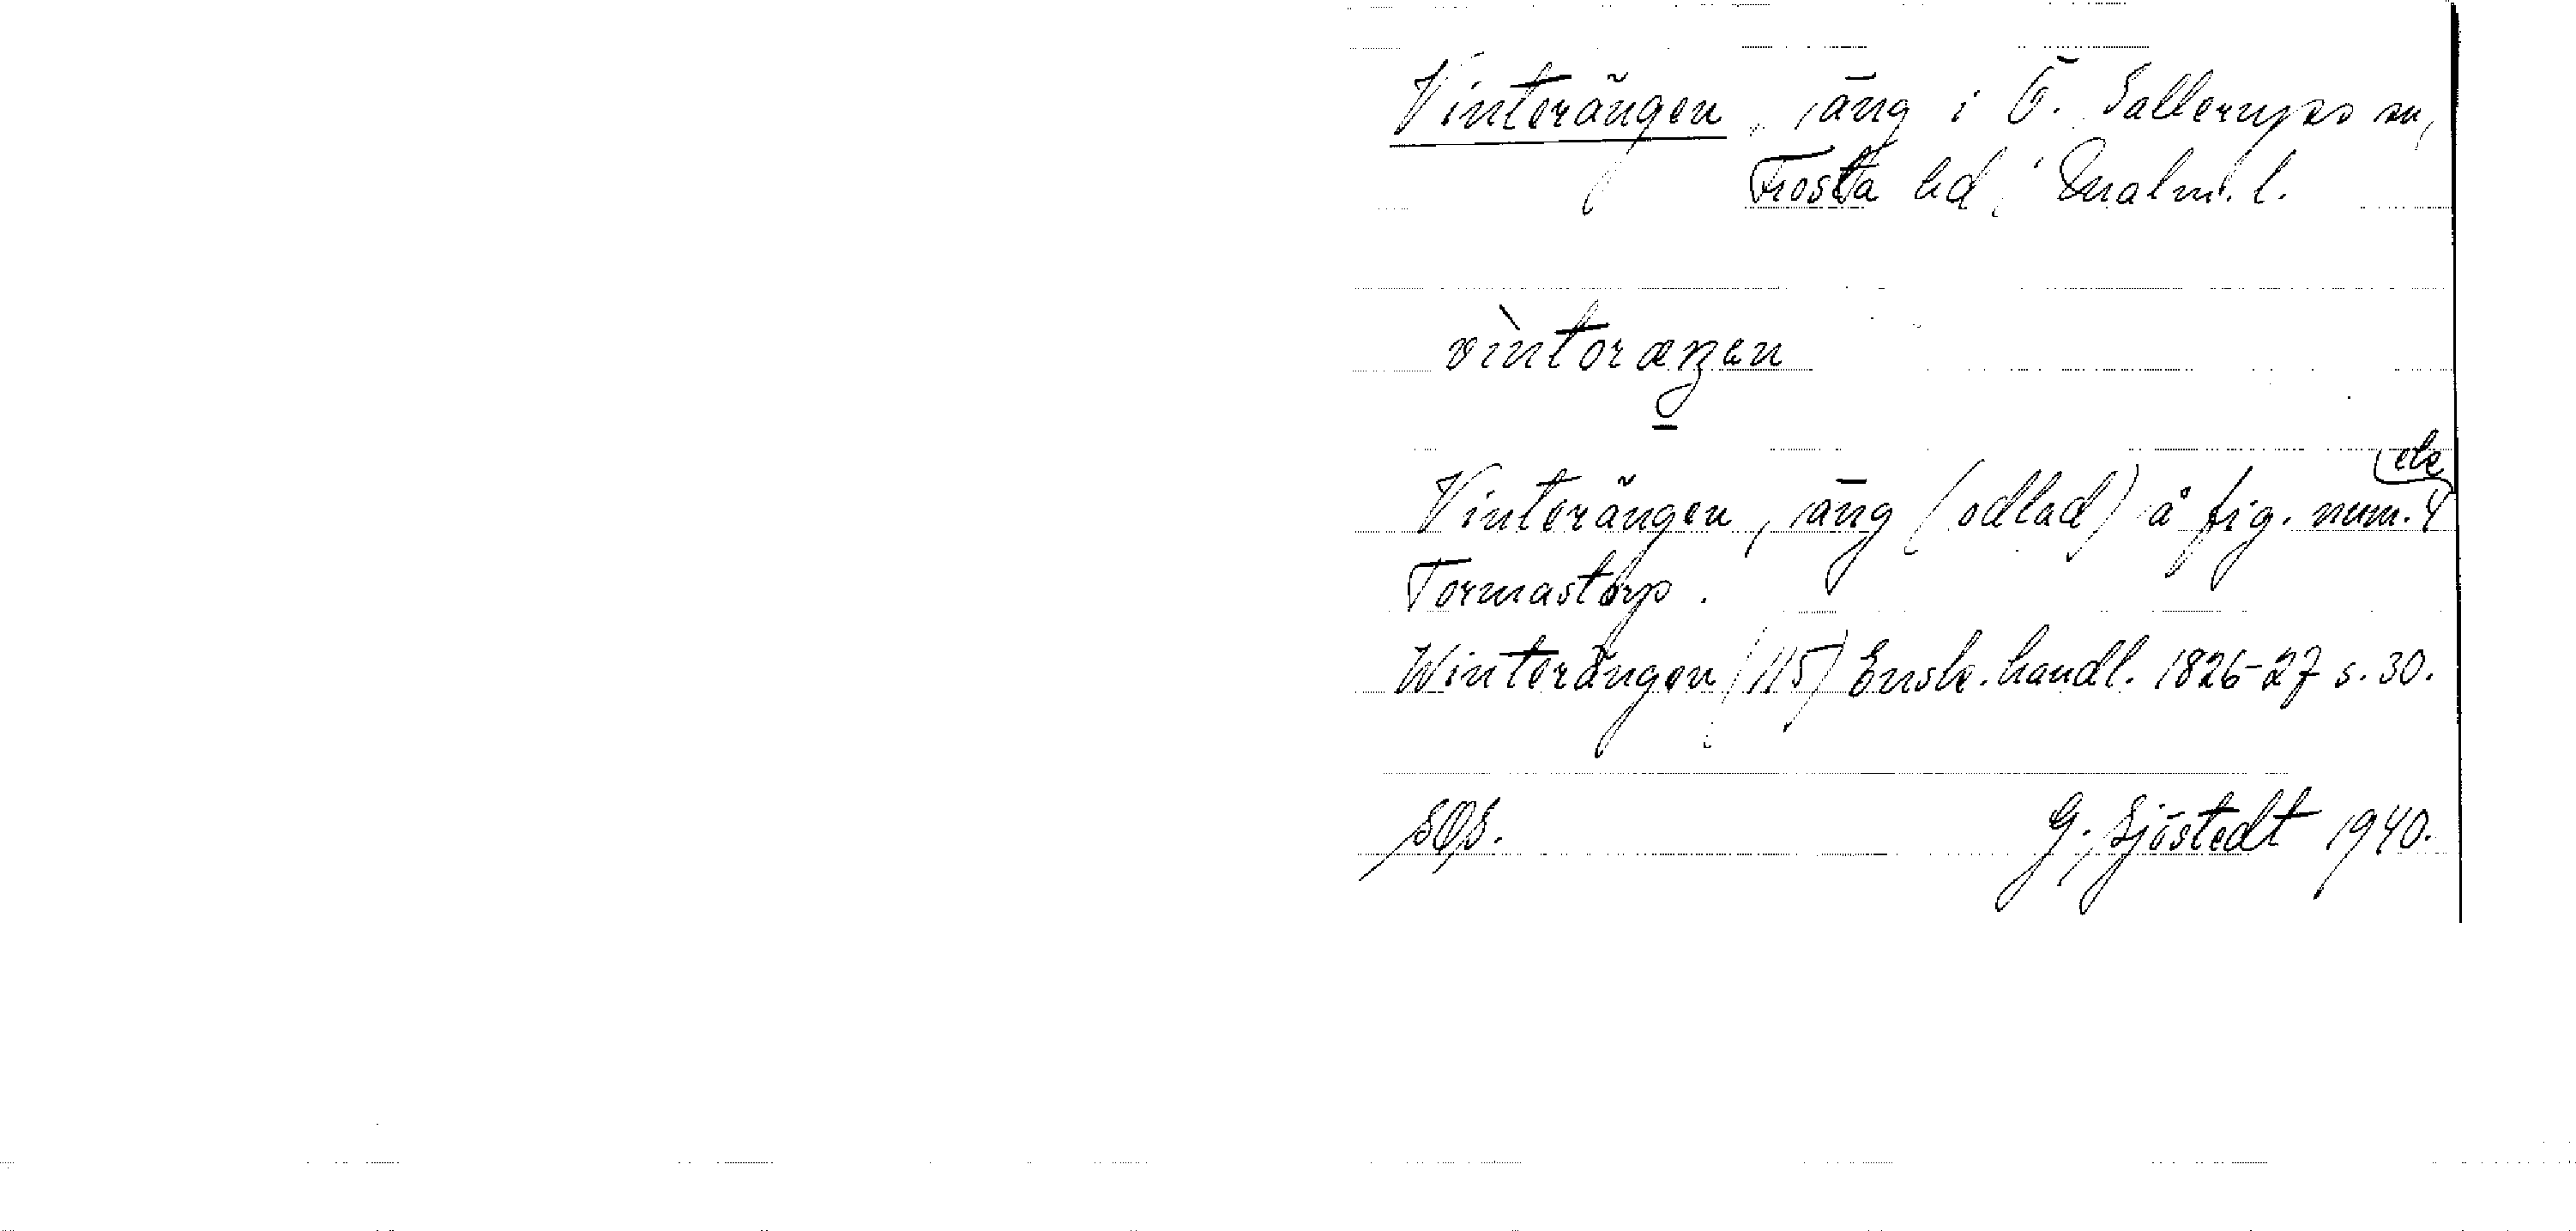 Vinterängen, äng i Ö. Sallerups sn,
Frosta hd, Malm. l.
vìntoræŋen
Vinterängen, äng (odlad) å fig. num. 4 etc
Tormastorp.
Winterängen (115) Ensk. handl. 1826-27 s. 30.
G. Sjöstedt 1940.